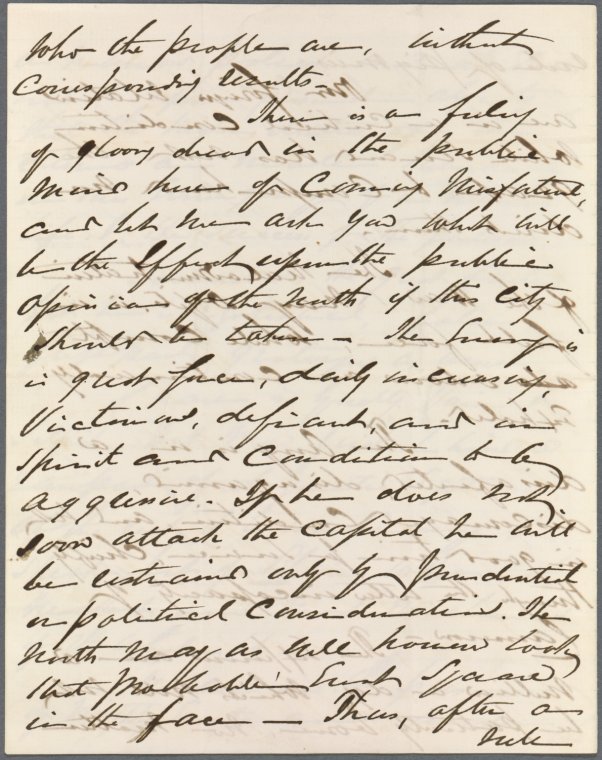 who the people are, without
corresponding results—
There is a feeling
of gloomy dread in the public
mind here of coming misfortune,
and let me ask you what will
be the effect upon the public
opinion of the North if this City
should be taken — The Enemy is
in great force, daily increasing,
Victorious, defiant, and in
spirit and condition to be
aggressive. If he does not
soon attack the Capital he will
be restrained only by prudential
or political consideration. The
North may as well however look
that probable Event square
in the face — Thus, after a